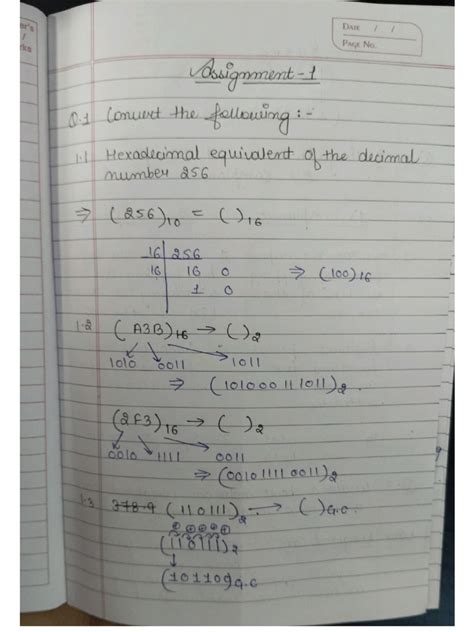 DATE / /
PAGE NO.
Assignment-1
Q.1 Convert the following :-
1.1 Hexadecimal equivalent of the decimal
number 256
⇒ (256)10 = ( )16
16 | 256
16 | 16 0 ⇒ (100)16
1 0
1.2 (A3B)16 → ( )2
1010 0011 1011
⇒ (101000111011)2
(2F3)16 → ( )2
0010 1111 0011
⇒ (001011110011)2
1.3 (110111)2 → ( )G.C
(110111)2